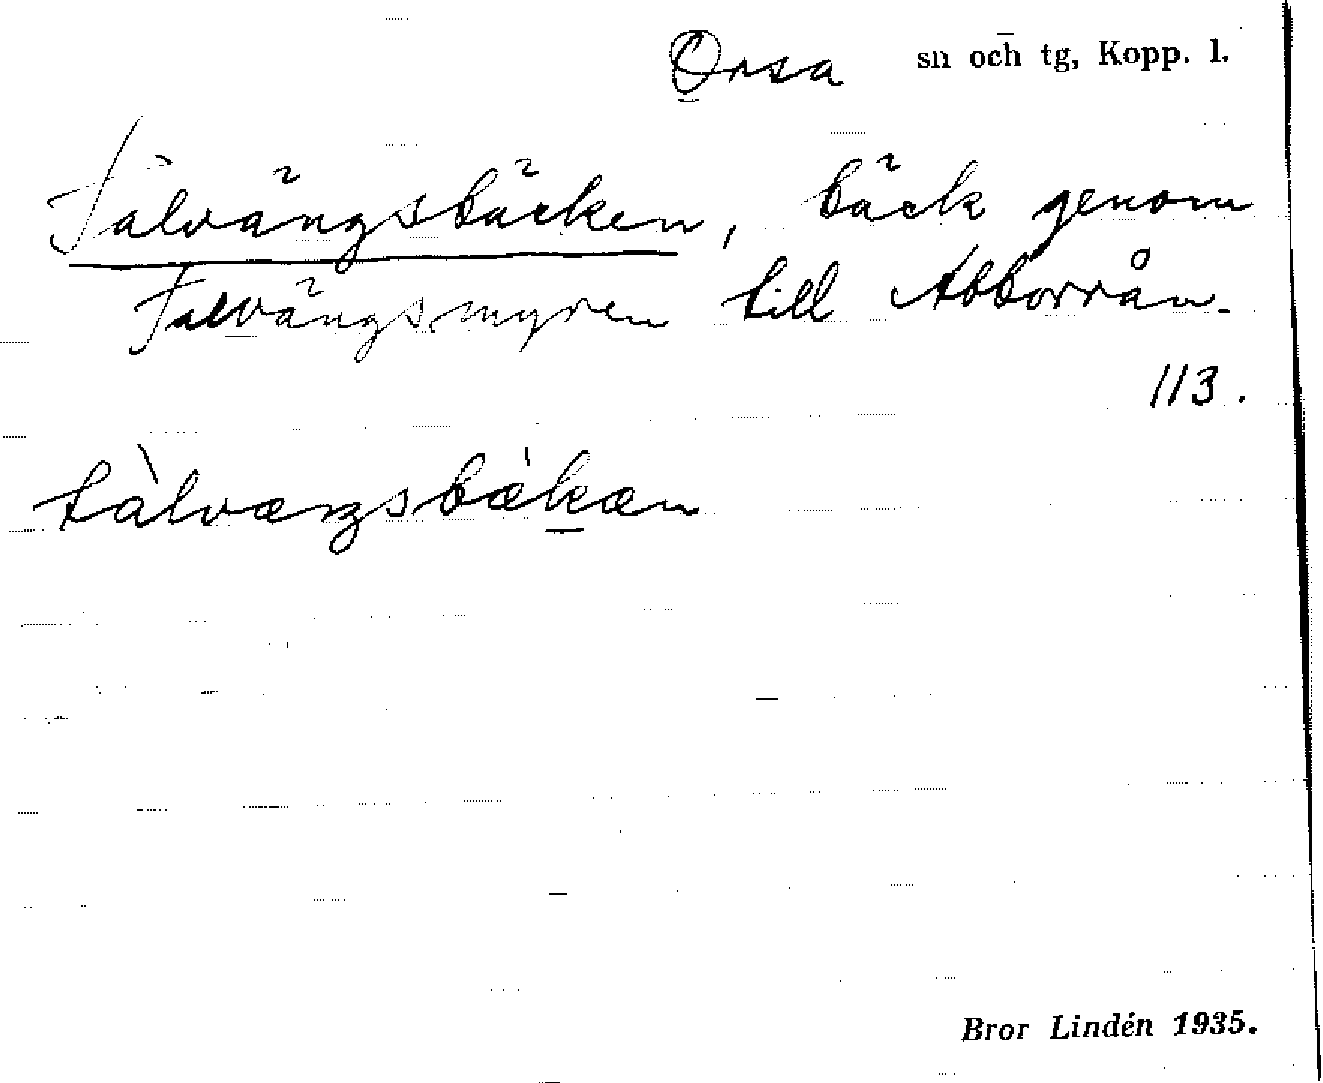 Orsa sn och tg, Kopp. l.
Talvängsbäcken, bäck genom
Talvängsmyren till Abborrån.
113.
tàlvæŋsbækæn
Bror Lindén 1935.